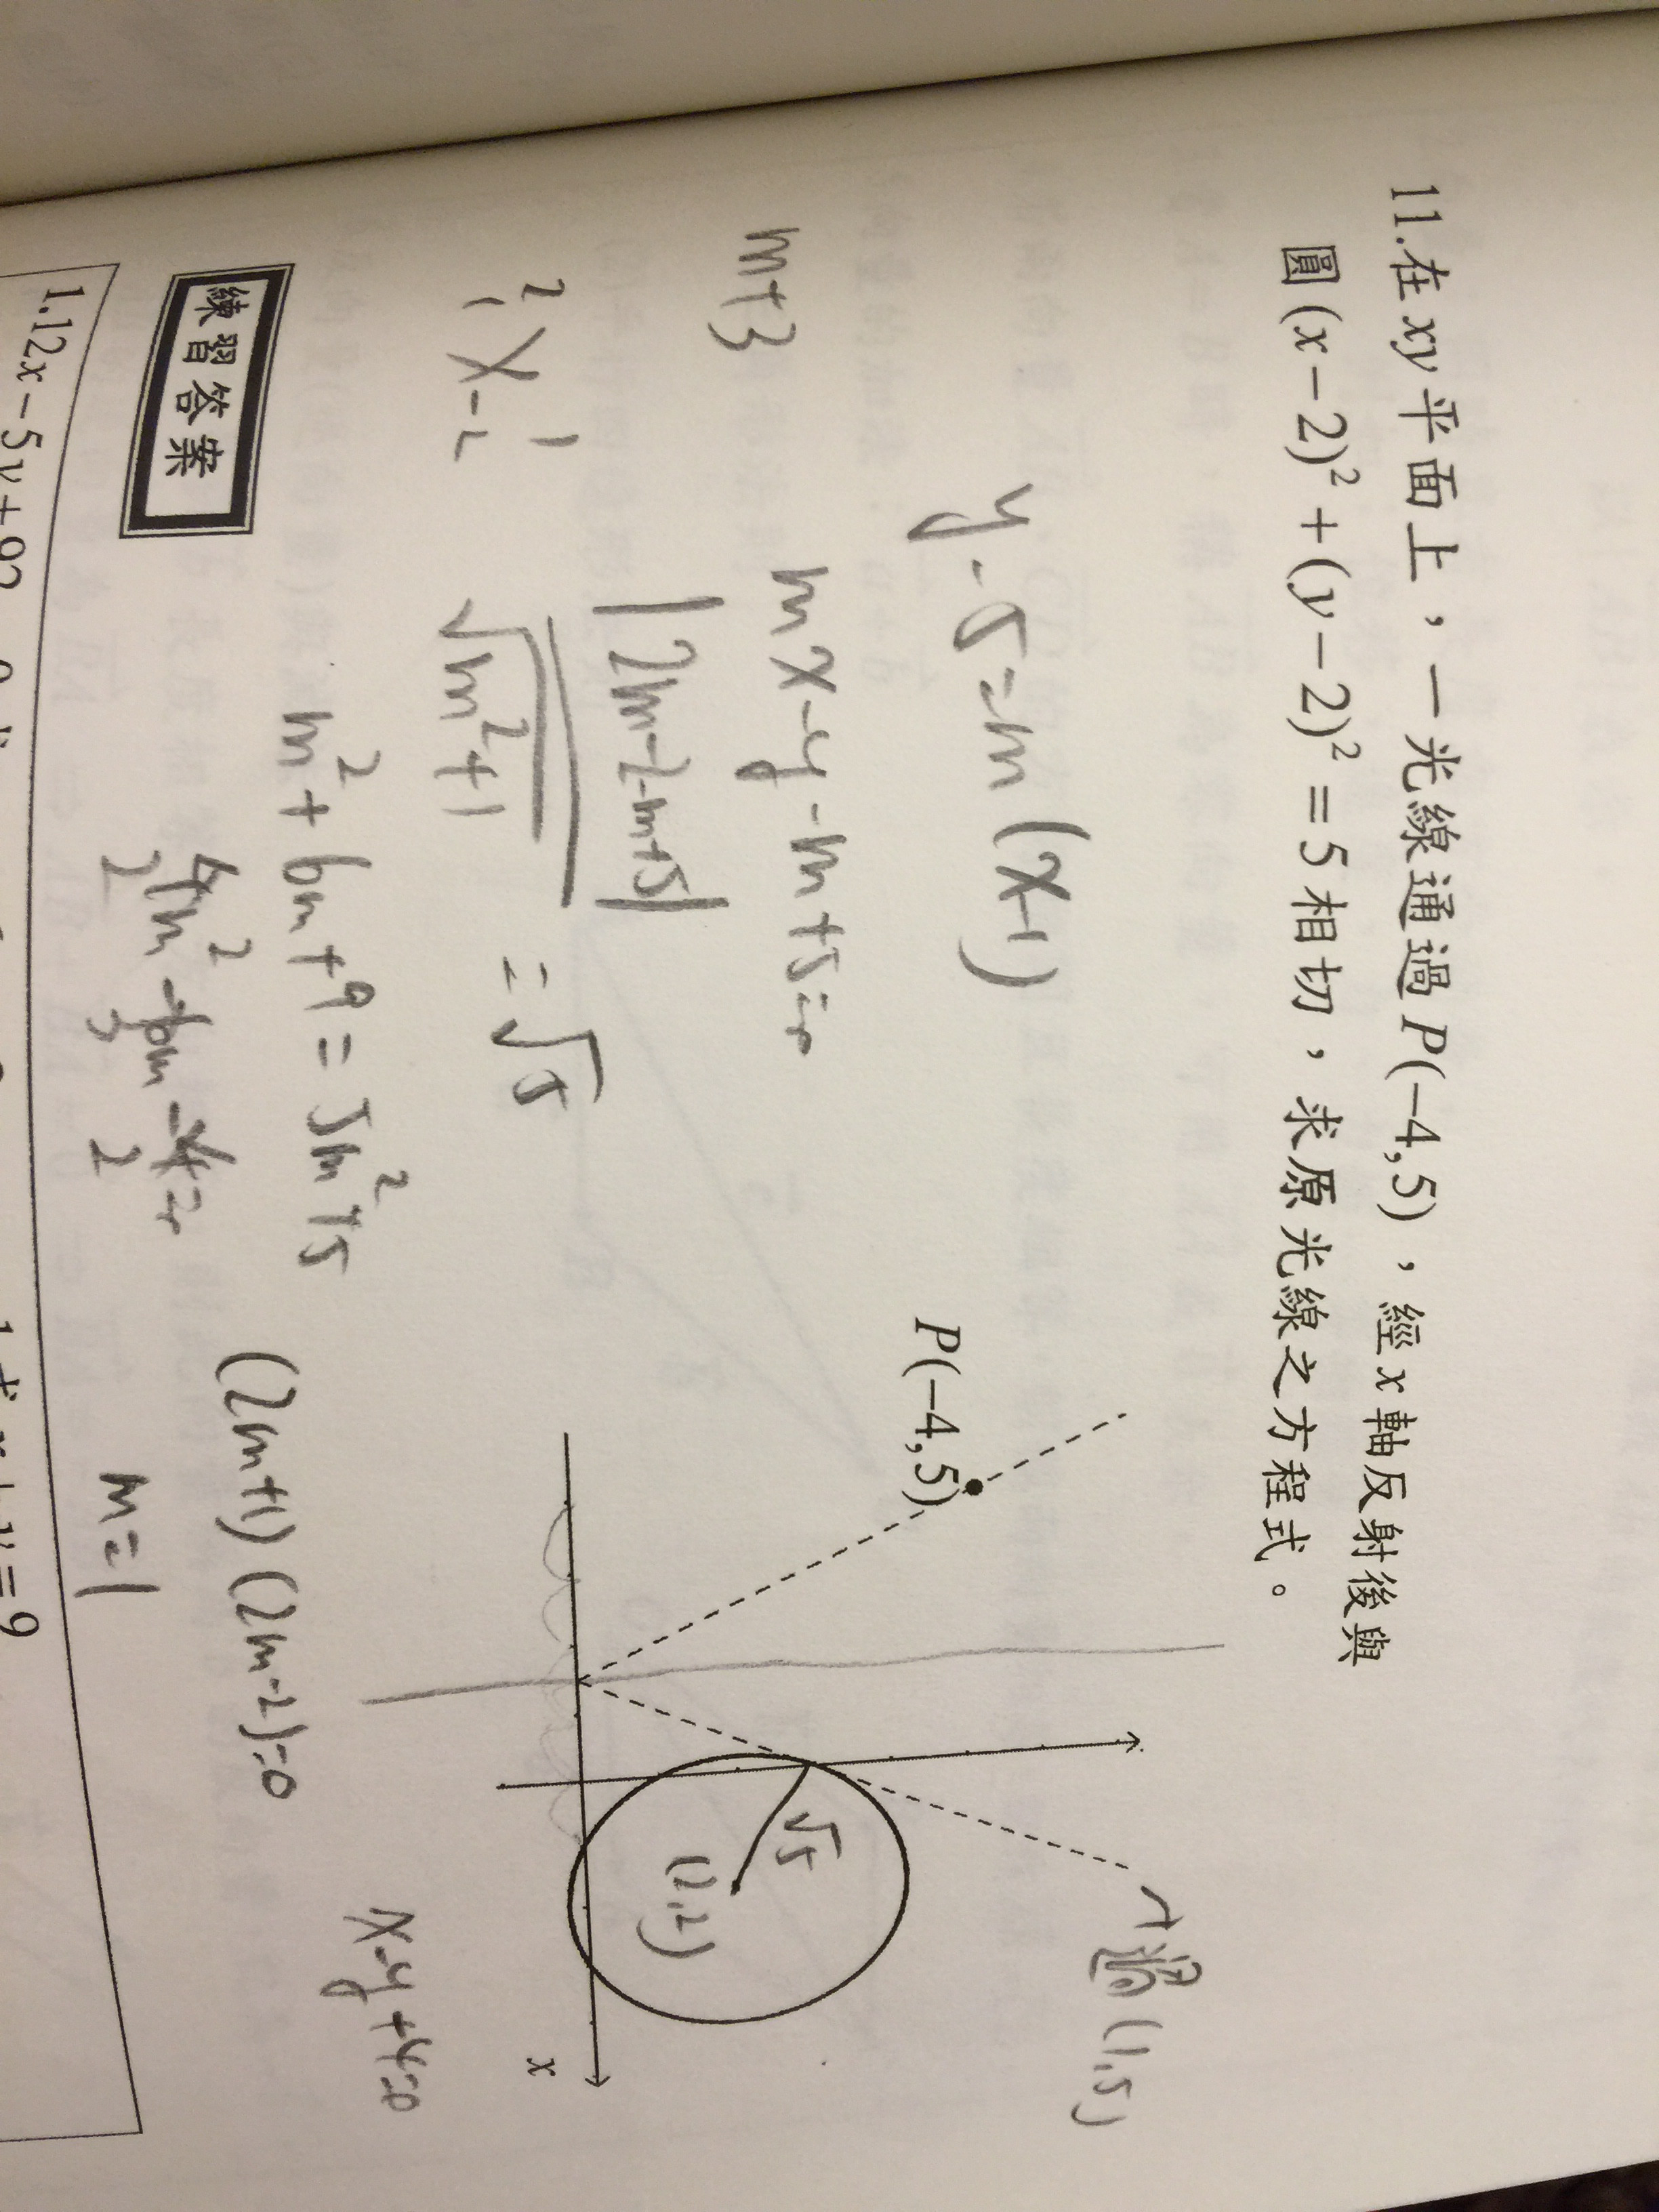 11.在xy平面上，一光線通過P(−4,5)，經x軸反射後與
圓(x−2)²+(y−2)²=5相切，求原光線之方程式。
y-5=m(x-1)
P(−4,5)
過(1,5)
m+3
mx-y-m+5=0
√5
(2,2)
|2m-2-m+5|
√m²+1
=√5
x
2 1
1 -2
m²+6m+9=5m²+5
4m²-6m-4=0
2 3 2
(2m+1)(2m-2)=0
m=1
x-y+4=0
練習答案